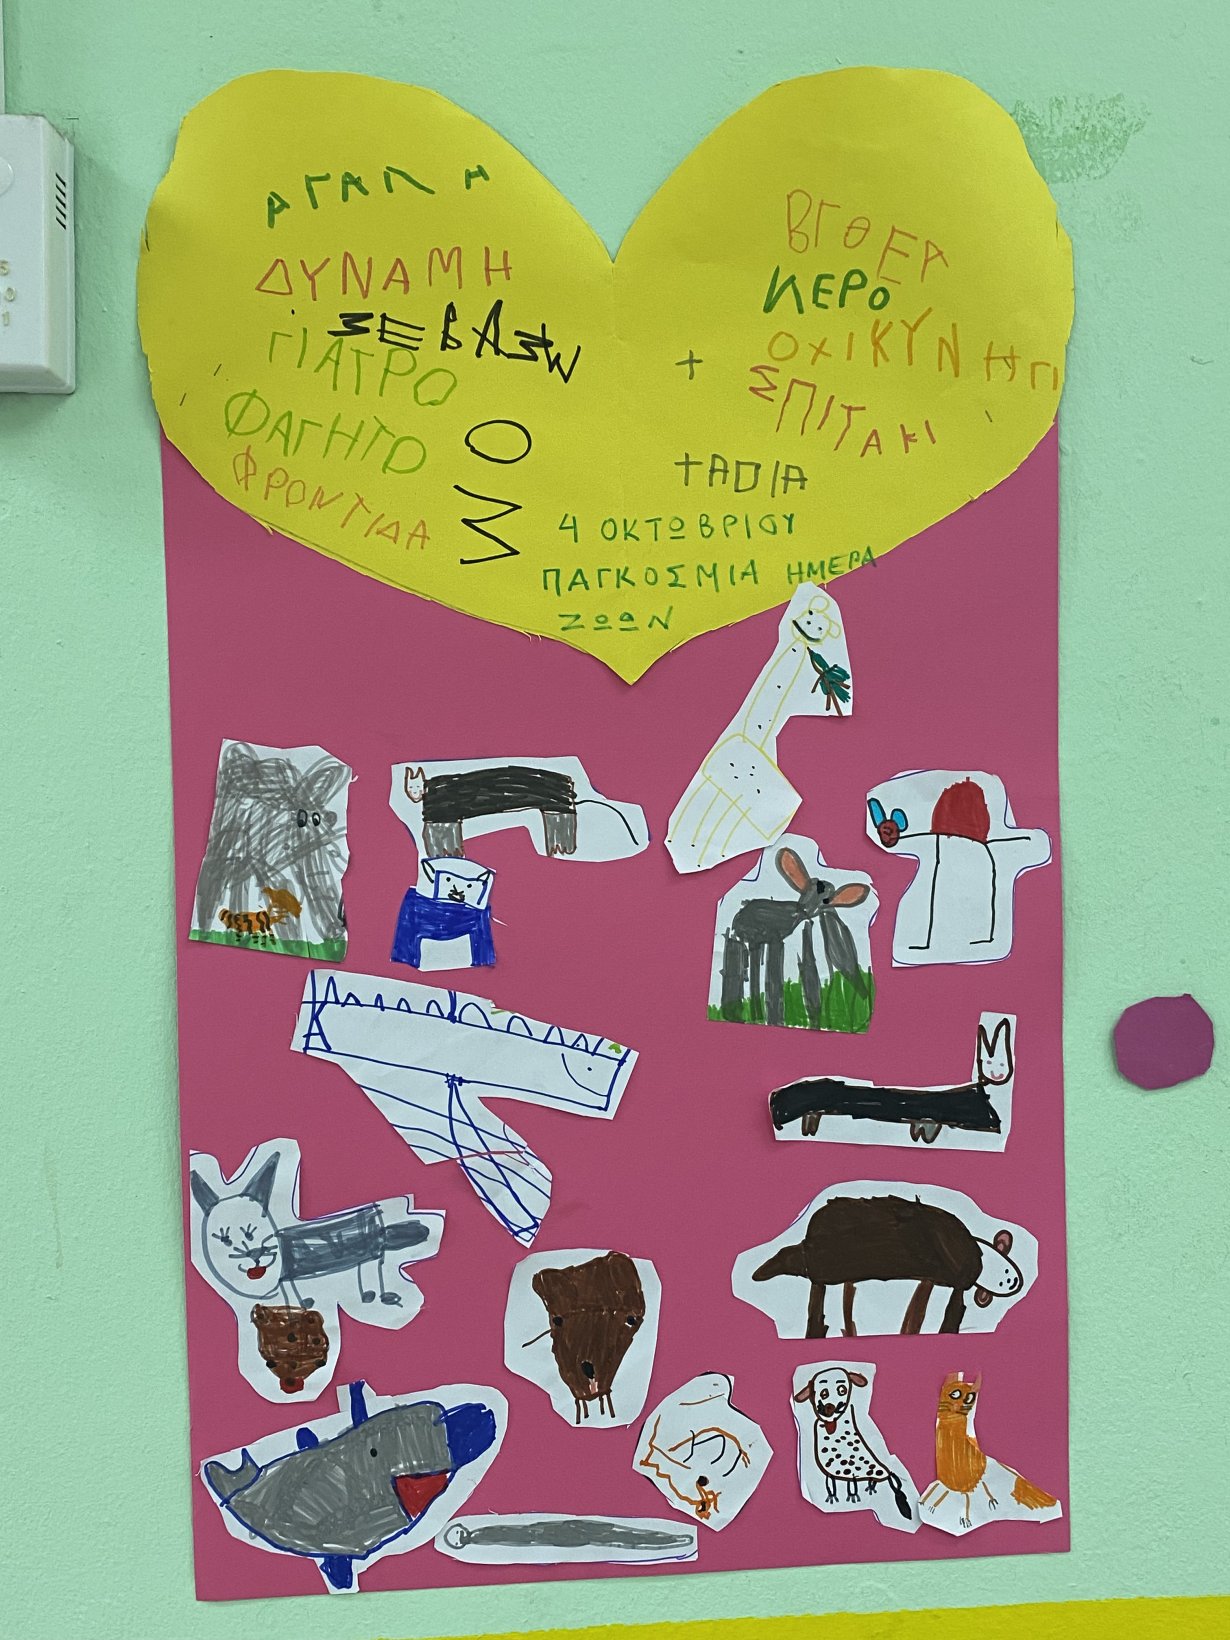 ΑΓΑΠΑ
ΔΥΝΑΜΗ
ΣΕΒΑΣΜ
ΓΙΑΤΡΟ
ΦΑΓΗΤΟ
ΦΡΟΝΤΙΔΑ
Ο
Σ
ΒΓΘΕΑ
ΝΕΡΟ
ΟΧΙΚΥΝΗΓΙ
+
ΣΠΙΤΑΚΙ
ΤΑΠΙΑ
4 ΟΚΤΩΒΡΙΟΥ
ΠΑΓΚΟΣΜΙΑ ΗΜΕΡΑ
ΖΩΩΝ